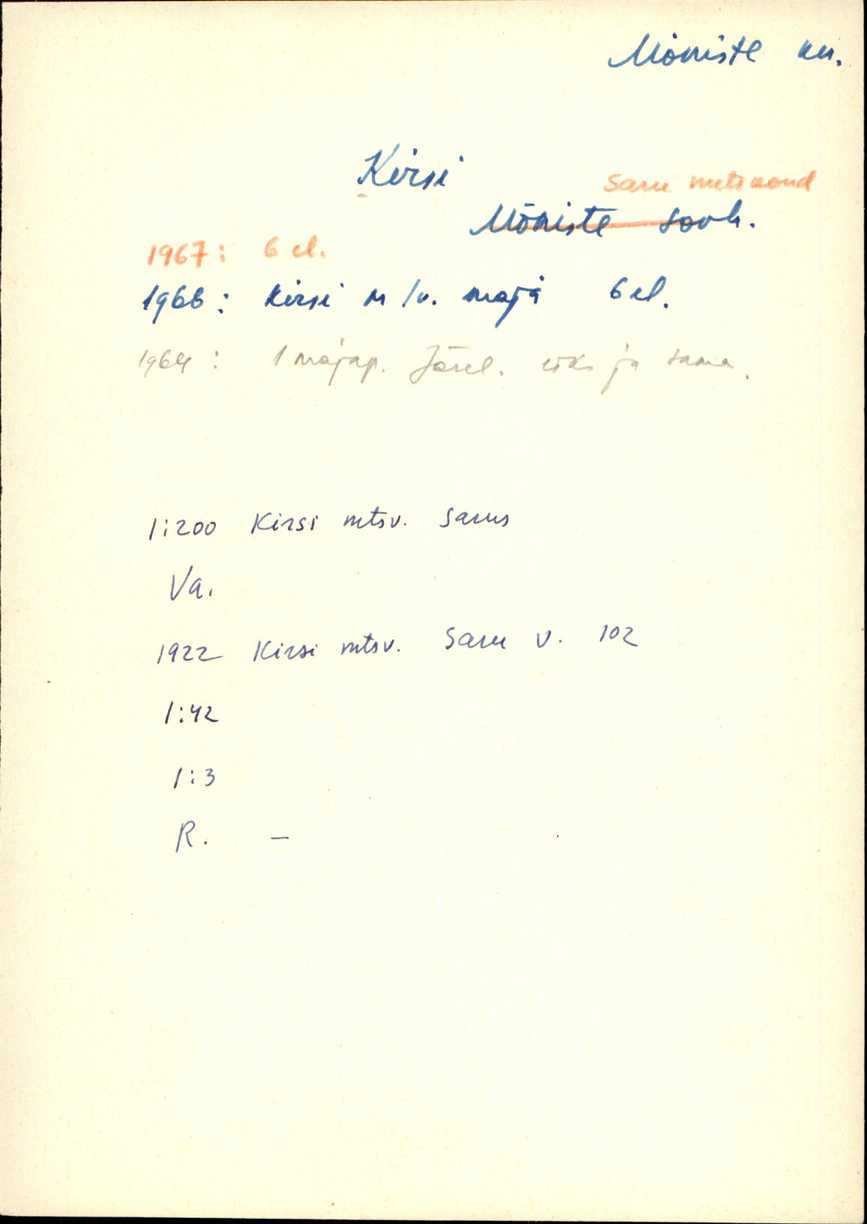 Mõniste kn.
Kirsi
Saru metskond
Mõniste sovh.
1967: 6 el.
1966: Kirsi m/v. maja 6 el.
1964: 1 majap. Järel. üks ja sama.
1:200 Kirsi mtsv. Sarus
Va.
1922 Kirsi mtsv. Saru v. 102
1:42
1:3
R. –